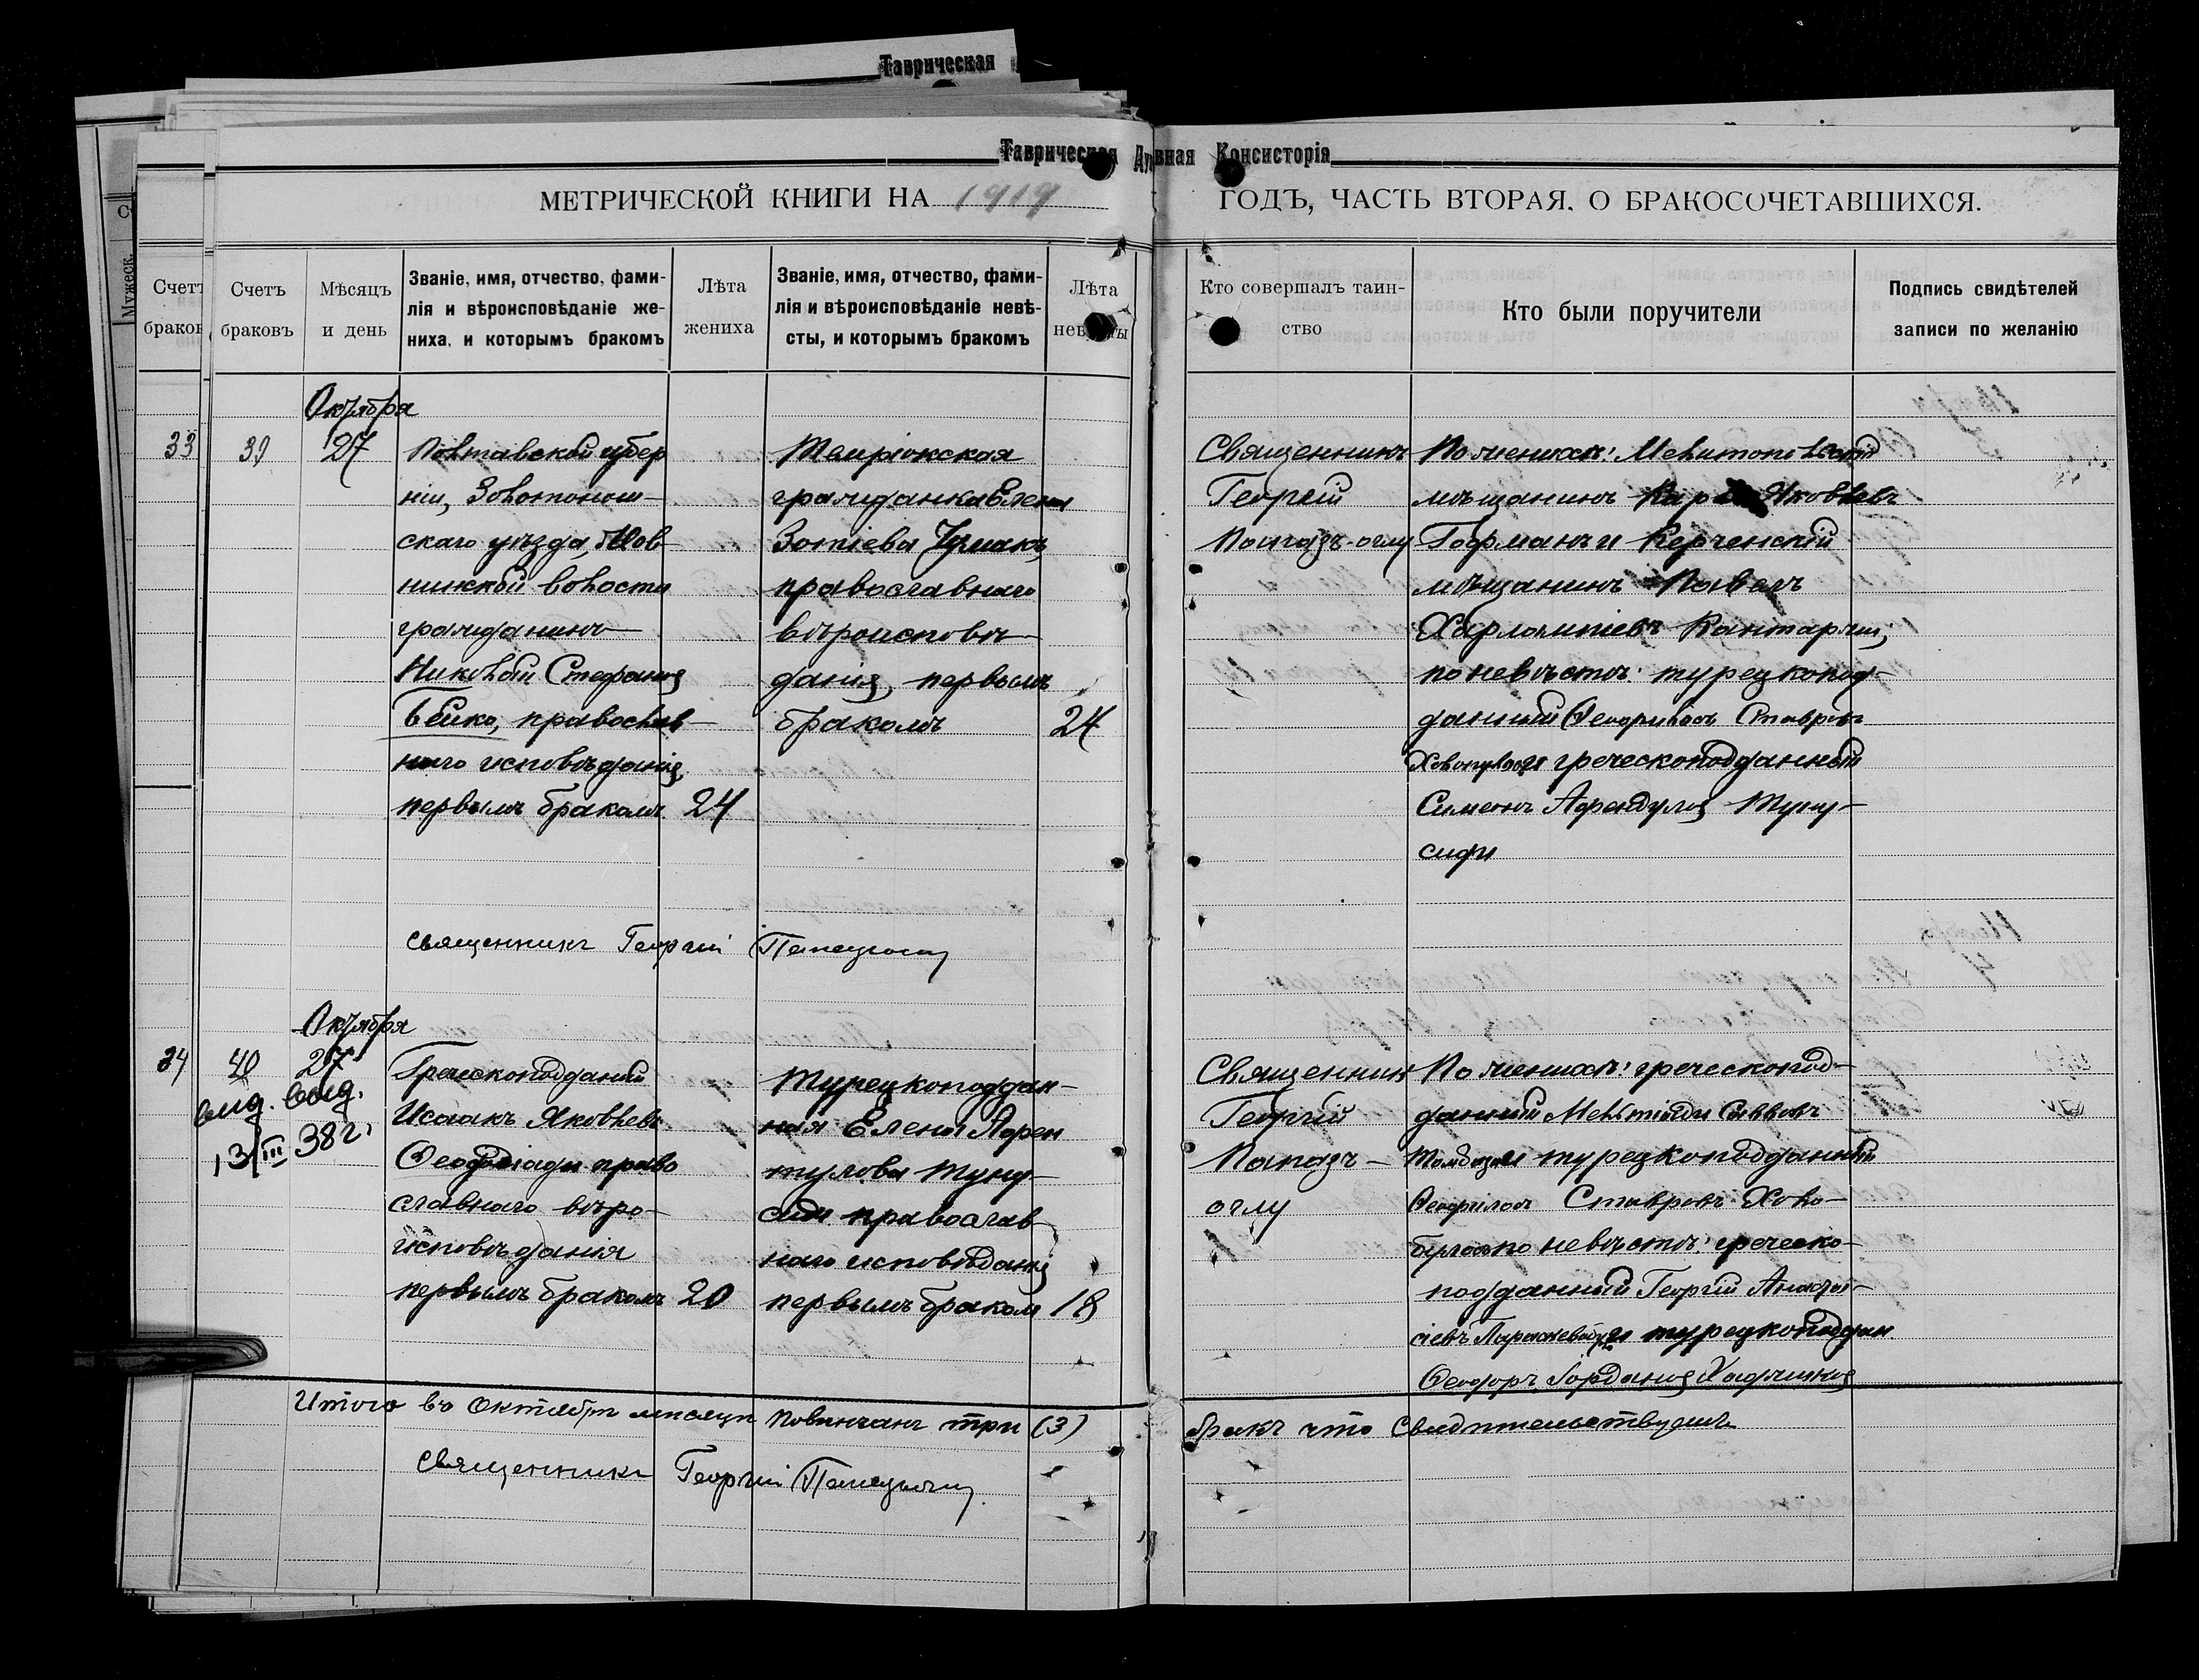 Таврическая
Таврическая Духовная Консисторія
МЕТРИЧЕСКОЙ КНИГИ НА 1919 ГОДЪ, ЧАСТЬ ВТОРАЯ. О БРАКОСОЧЕТАВШИХСЯ.
Мужеск.
Счетъ
браковъ
Счетъ
браковъ
Мѣсяцъ
и день
Званіе, имя, отчество, фами-
лія и вѣроисповѣданіе же-
ниха, и которымъ бракомъ
Лѣта
жениха
Званіе, имя, отчество, фами-
лія и вѣроисповѣданіе невѣ-
сты, и которымъ бракомъ
Лѣта
невѣсты
Кто совершалъ таин-
ство
Кто были поручители
Подпись свидѣтелей
записи по желанію
33
39
Октября
27
Полтавской губер
ніи, Золотонош-
скаго уѣзда,
волости
гражданинъ
Николай Стефановъ
Бейко, православ-
наго исповѣданія,
первымъ бракомъ
24
Темрюкская
гражданка Елена
Зотіева Чумакъ,
православнаго
вѣроисповѣ-
данія, первымъ
бракомъ
24
Священникъ
Георгій
Папазъ-оглу
По женихѣ: Мелитопольскій
мѣщанинъ Яковлевъ
Гофманъ и Керченскій
мѣщанинъ Павелъ
Харлампіевъ Кантаржи,
по невѣстѣ: турецкопод-
данный Ѳеофилосъ Ставровъ
и греческоподданный
Симеонъ Афендуловъ Туну-
сиди
Священникъ Георгій Папазъоглу
34
40
Октября
27
выд. выд.
13/III 38 г.
Греческоподданный
Исаакъ Яковлевъ
Ѳеофодіади право
славнаго вѣро-
исповѣданія
первымъ бракомъ
20
Турецкоподдан-
ная Елена Афен
тулова Туну-
сиди православ-
наго исповѣданія
первымъ бракомъ
18
Священникъ
Георгій
Папазъ-
оглу
По женихѣ: греческопод-
данный Мелтіади Саввовъ
и турецкоподданный
Ѳеофилосъ Ставровъ Холо-
по невѣстѣ: греческо-
подданный Георгій Анаста-
сіевъ и турецкоподдан.
Ѳеодоръ Іордановъ
Итого въ Октябрѣ мѣсяцѣ повѣнчанъ три (3)
бракъ что свидѣтельствуемъ
Священникъ Георгій Папазъоглу